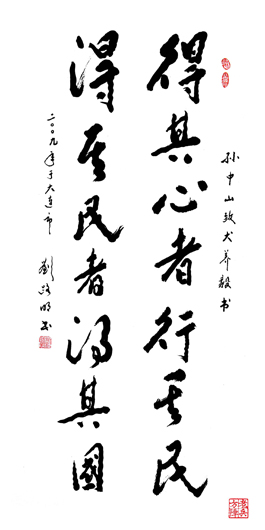 孙中山致犬养毅书
得其心者得其民
得其民者得其國
二〇〇九年于大连市
劉路明书